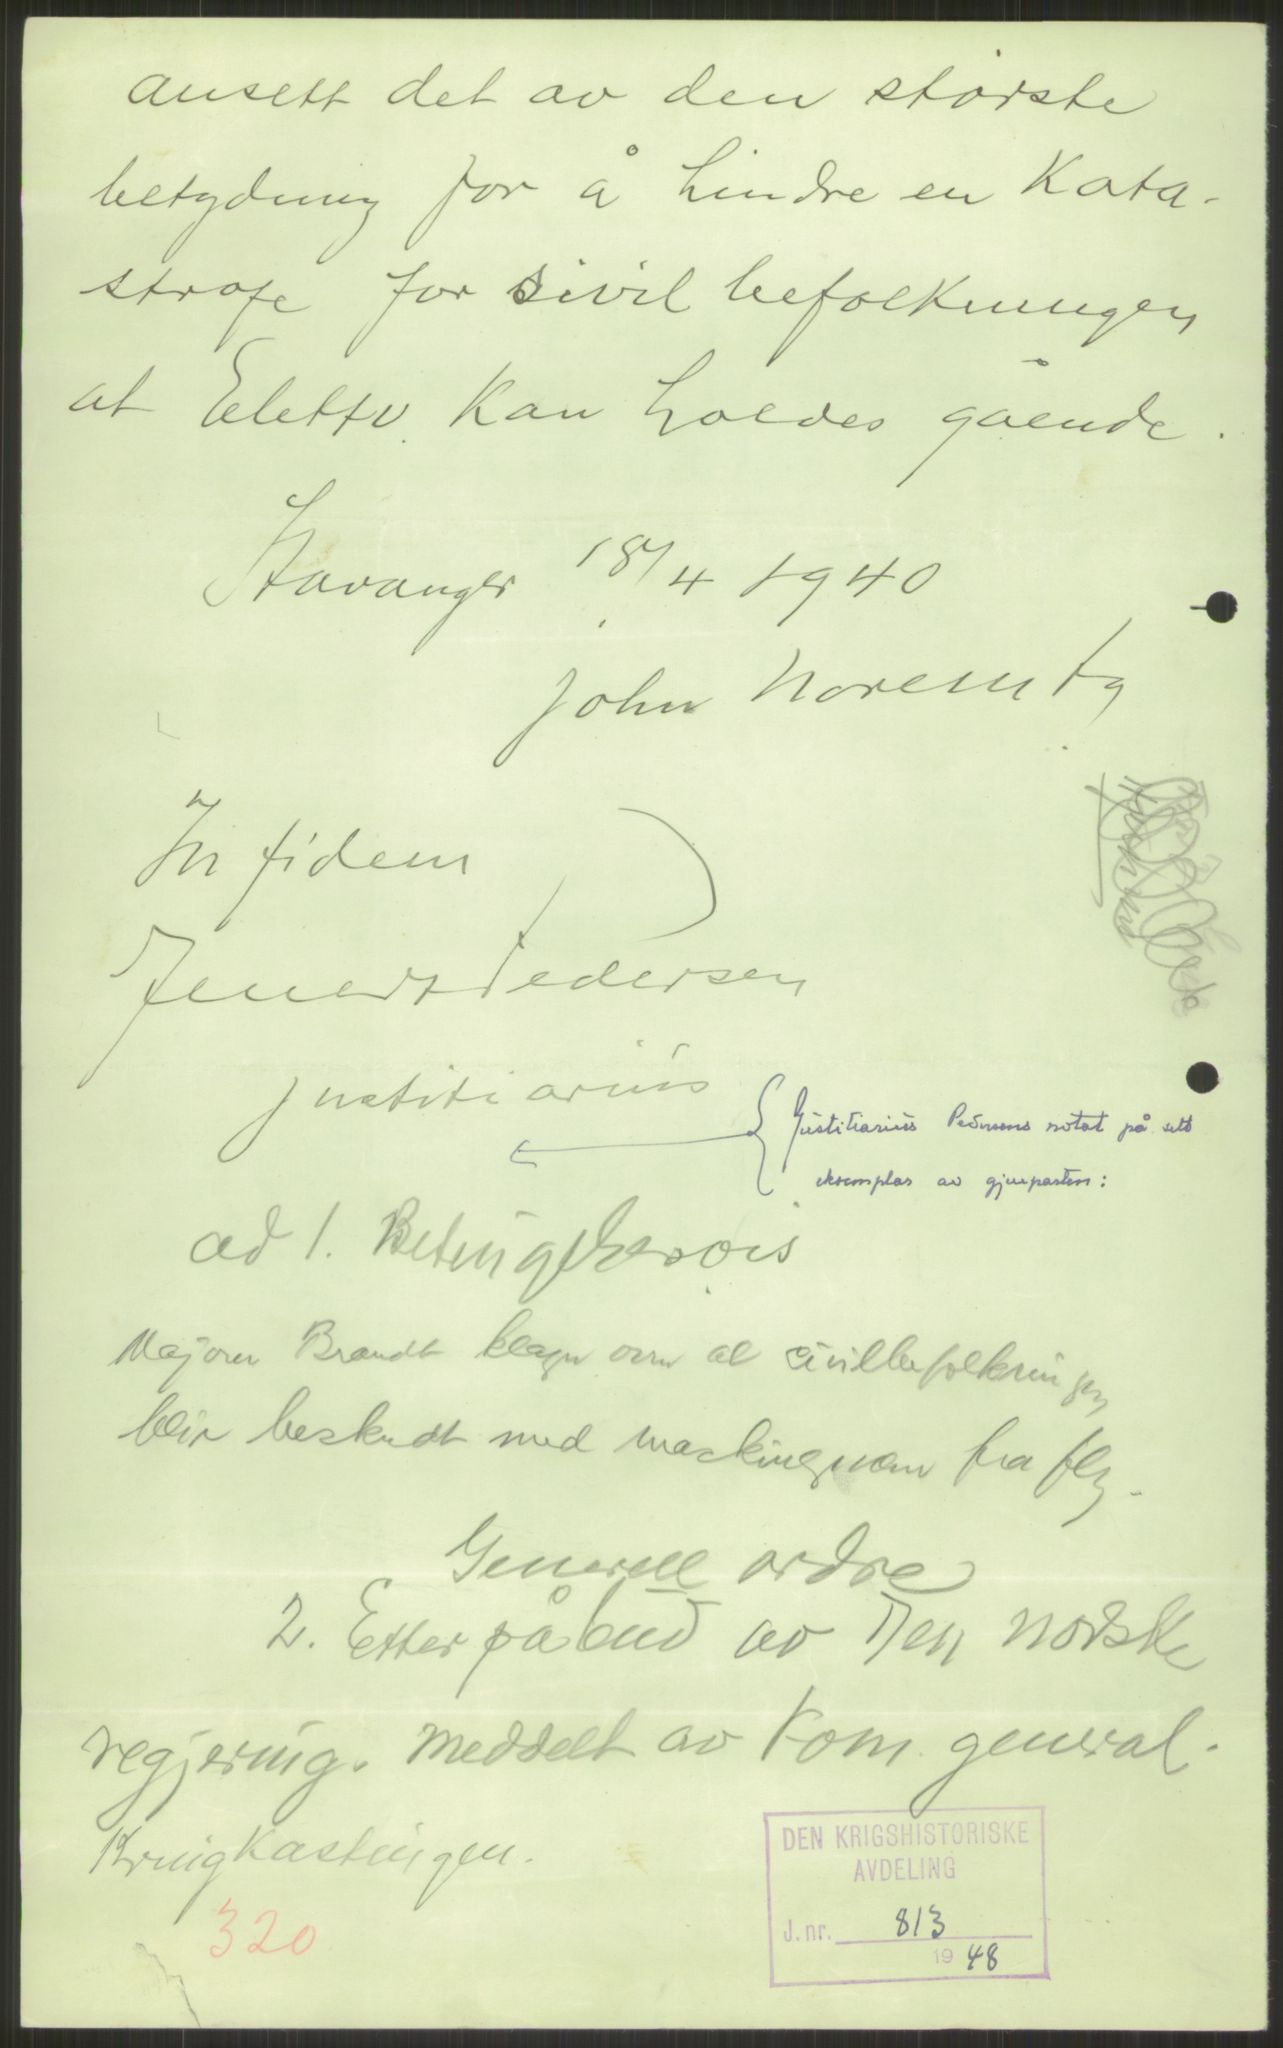 ansett det av den største
betydning for å hindre en kata-
strofe for sivil befolkningen
at Elektv. kan holdes gående.
Stavanger 18/4 1940
John Norem
In fidem
Pedersen
justitiarius
Justitiarius Pedersens notat på sitt
eksemplar av gjenparten:
ad 1. Betingelsesvis
Majorer Brandt klager over at civilbefolkningen
blir beskudt med maskingevær fra fly.
Generell ordre
2. Etter påbud av den norske
regjering. Meddelt av kom. general.
Kringkastingen.
320
DEN KRIGSHISTORISKE
AVDELING
J. nr. 813
1948